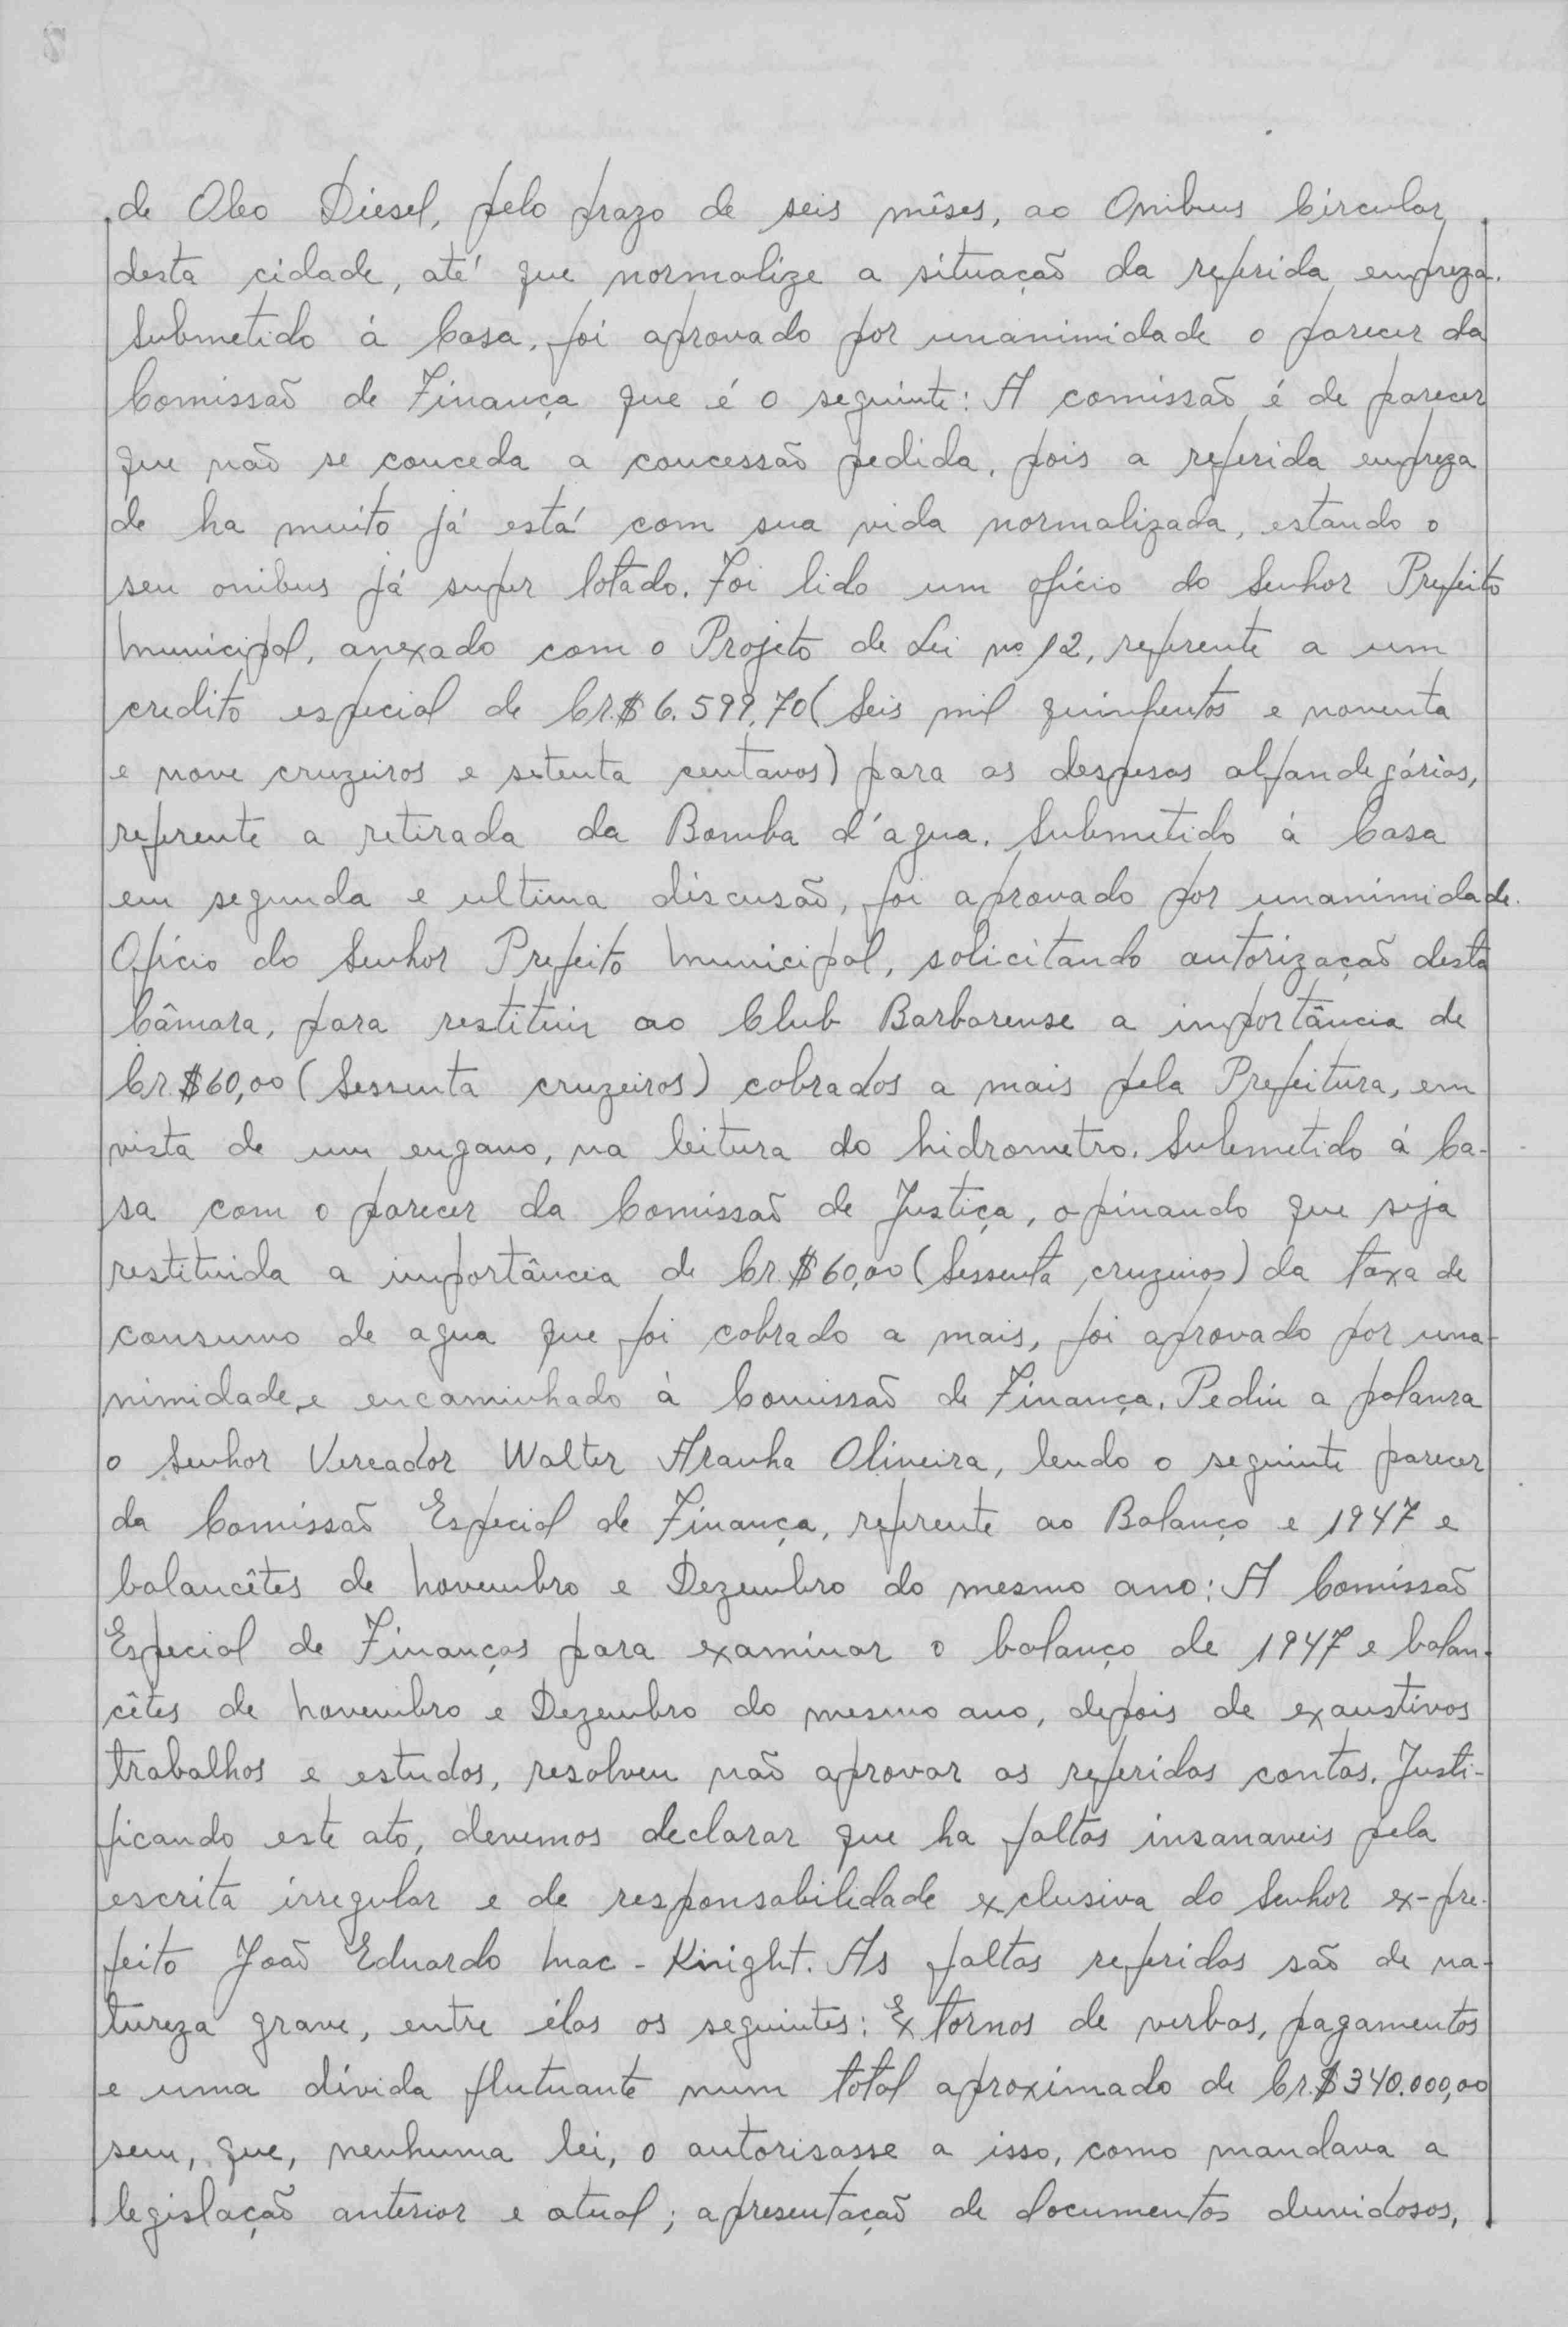 de Oleo Diesel, pelo prazo de seis mêses, ao Onibus Circular
desta cidade, até que normalize a situação da referida empreza.
Submetido á Casa, foi aprovado por unanimidade o parecer da
Comissão de Finança que é o seguinte: A comissão é de parecer
que não se conceda a concessão pedida, pois a referida empreza
de ha muito já está com sua vida normalizada, estando o
seu onibus já super lotado. Foi lido um ofício do Senhor Prefeito
Municipal, anexado com o Projeto de Lei nº 12, referente a um
credito especial de Cr.$ 6.599,70 (Seis mil quinhentos e noventa
e nove cruzeiros e setenta centavos) para as despesas alfandegárias,
referente a retirada da Bomba d'agua. Submetido á Casa
em segunda e ultima discusão, foi aprovado por unanimidade.
Ofício do Senhor Prefeito Municipal, solicitando autorização desta
Câmara, para restituir ao Club Barbarense a importância de
Cr.$60,00 (Sessenta cruzeiros) cobrados a mais pela Prefeitura, em
vista de um engano, na leitura do hidrometro. Submetido á Ca-
sa com o parecer da Comissão de Justiça, opinando que seja
restituida a importância de Cr.$60,00 (Sessenta cruzeiros) da taxa de
consumo de agua que foi cobrado a mais, foi aprovado por una-
nimidade e encaminhado à Comissão de Finança. Pediu a palavra
o Senhor Vereador Walter Aranha Oliveira, lendo o seguinte parecer
da Comissão Especial de Finança, referente ao Balanço e 1947 e
balancêtes de Novembro e Dezembro do mesmo ano: A Comissão
Especial de Finanças para examinar o balanço de 1947 e balan-
cêtes de Novembro e Dezembro do mesmo ano, depois de exaustivos
trabalhos e estudos, resolveu não aprovar as referidas contas. Justi-
ficando este ato, devemos declarar que ha faltas insanaveis pela
escrita irregular e de responsabilidade exclusiva do Senhor ex-pre-
feito João Eduardo Mac-Knight. As faltas referidas são de na-
tureza grave, entre élas as seguintes: Extornos de verbas, pagamentos
e uma dívida flutuante num total aproximado de Cr.$340.000,00
sem, que, nenhuma lei, o autorisasse a isso, como mandava a
legislação anterior e atual; apresentação de documentos duvidosos,